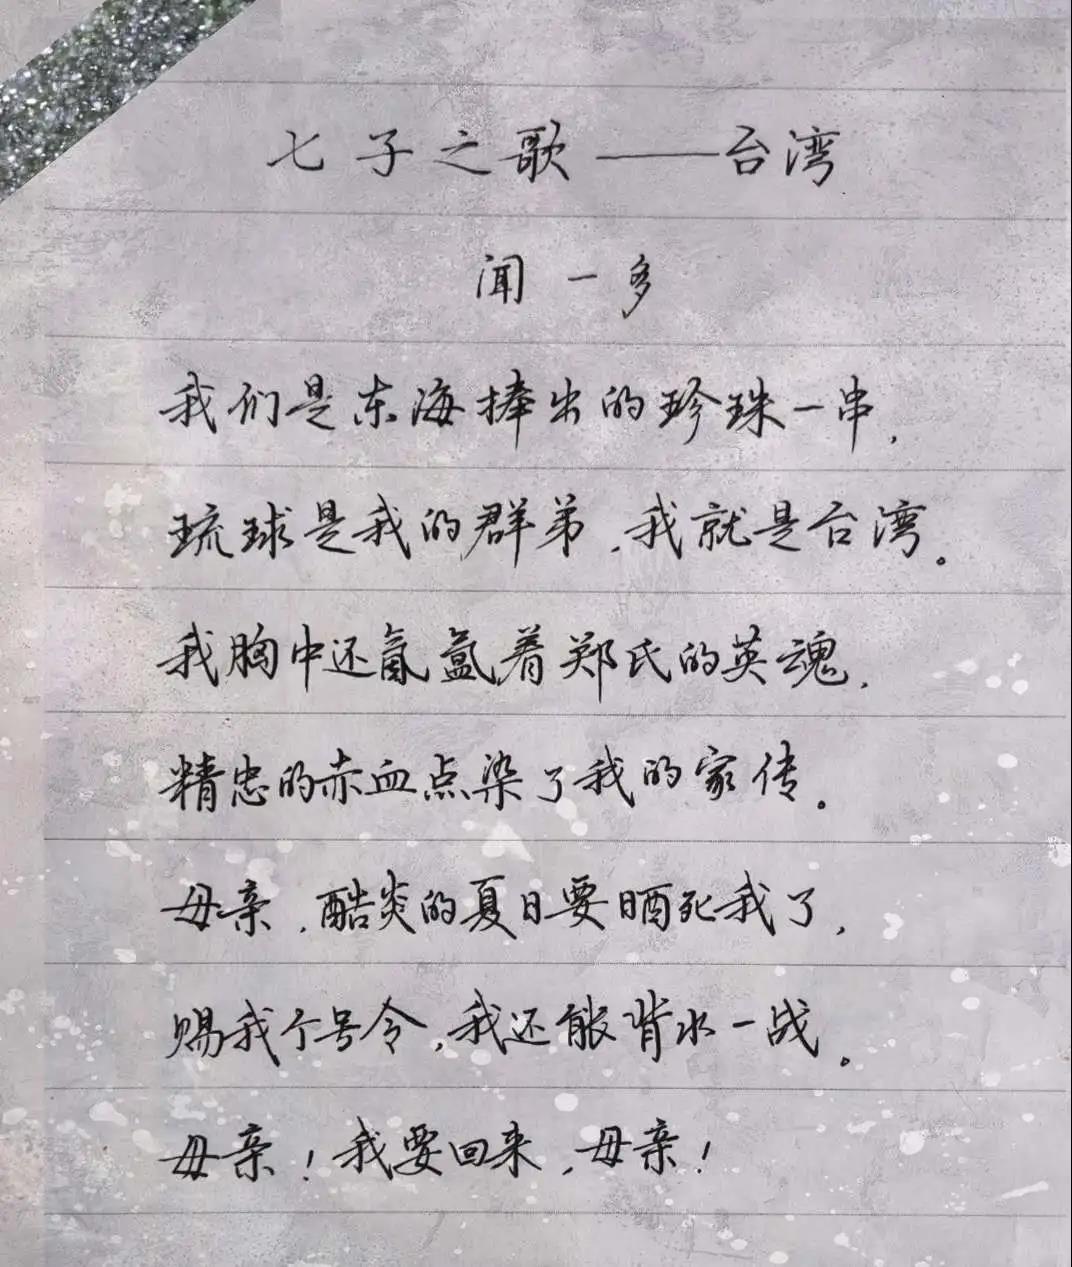 七子之歌——台湾
闻一多
我们是东海捧出的珍珠一串，
琉球是我的群弟，我就是台湾。
我胸中还氤氲着郑氏的英魂，
精忠的赤血点染了我的家传。
母亲，酷炎的夏日要晒死我了，
赐我个号令，我还能背水一战。
母亲！我要回来，母亲！